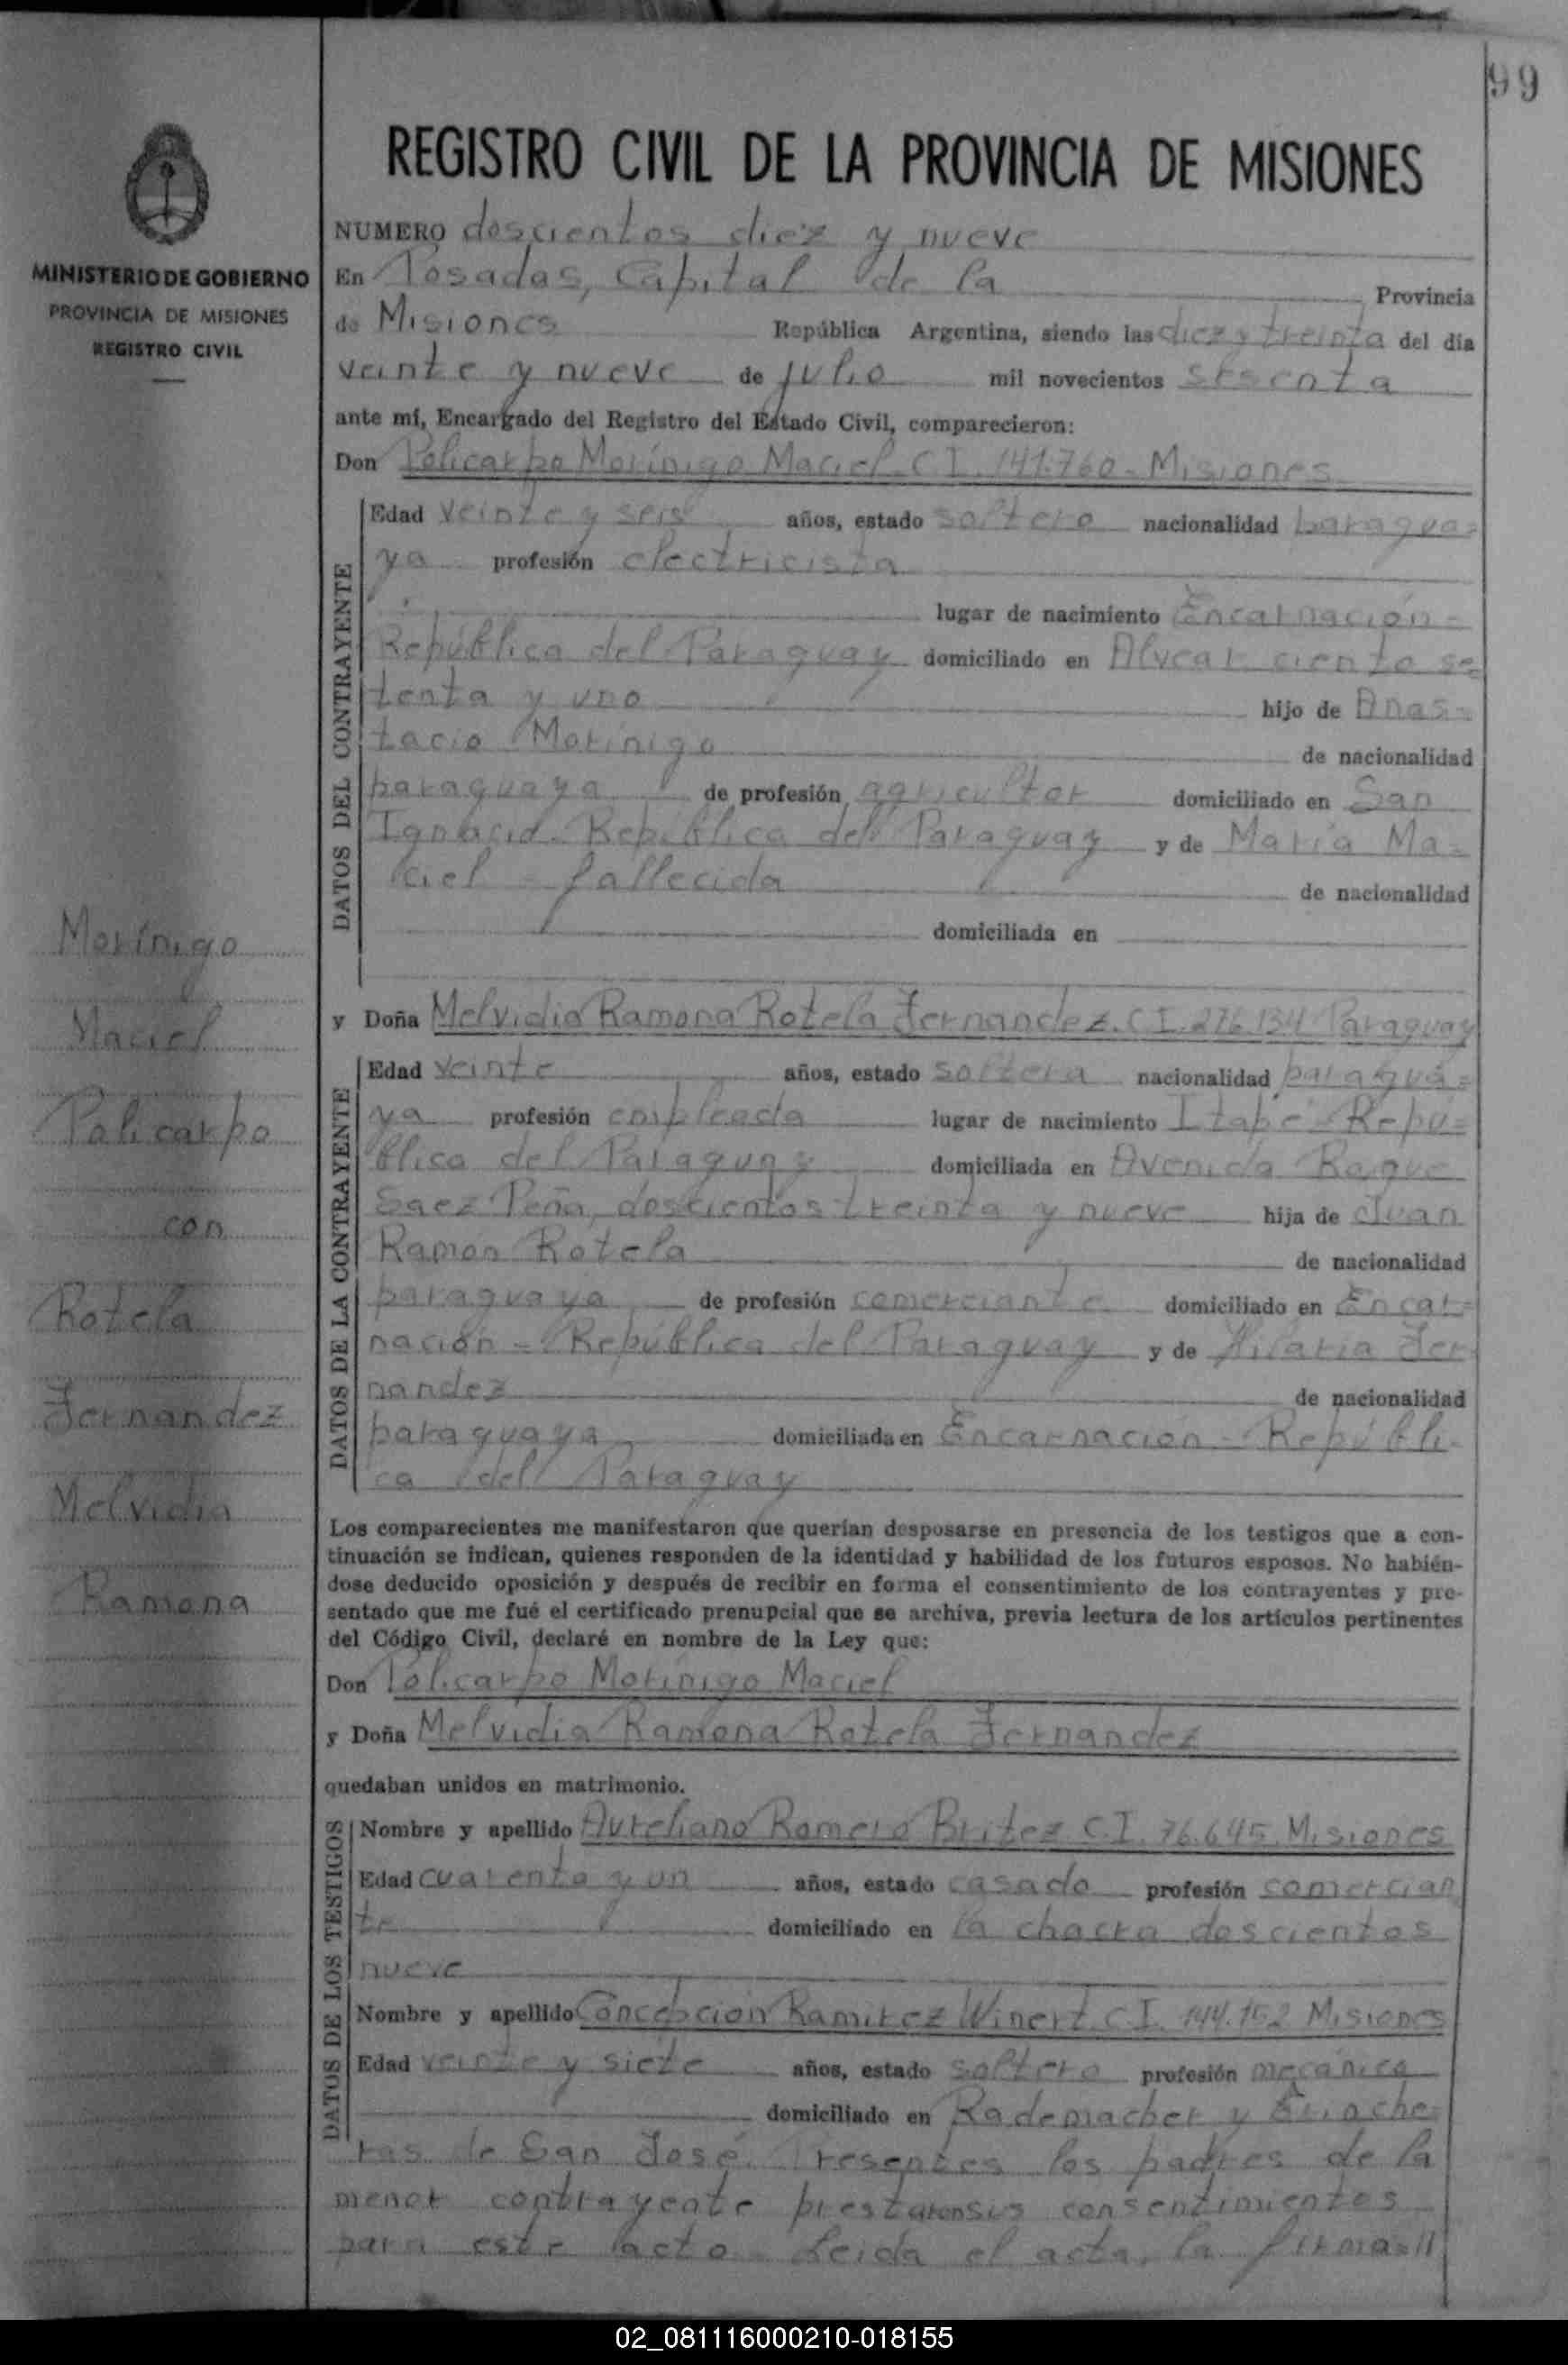 99
REGISTRO CIVIL DE LA PROVINCIA DE MISIONES
MINISTERIO DE GOBIERNO
PROVINCIA DE MISIONES
REGISTRO CIVIL
NUMERO doscientos diez y nueve
En Posadas, Capital de la Provincia
de Misiones República Argentina, siendo las diez y treinta del día
veinte y nueve de julio mil novecientos sesenta
ante mí, Encargado del Registro del Estado Civil, comparecieron:
Don Policarpo Morínigo Maciel - C I. 141.760 - Misiones
DATOS DEL CONTRAYENTE
Edad veinte y seis años, estado soltero nacionalidad paragua=
ya profesión electricista
lugar de nacimiento Encarnación -
República del Paraguay domiciliado en Alvear ciento se=
tenta y uno hijo de Anas=
tacio Morínigo de nacionalidad
paraguaya de profesión agricultor domiciliado en San
Ignacio - República del Paraguay y de María Ma=
ciel - fallecida de nacionalidad
domiciliada en
y Doña Melvidia Ramona Rotela Fernandez. C I. 276.134 Paraguay
DATOS DE LA CONTRAYENTE
Edad veinte años, estado soltera nacionalidad paragua=
ya profesión empleada lugar de nacimiento Itapé - Repú=
blica del Paraguay domiciliada en Avenida Roque
Saez Peña, doscientos treinta y nueve hija de Juan
Ramón Rotela de nacionalidad
paraguaya de profesión comerciante domiciliado en Encar=
nación - República del Paraguay y de Hilaria Fer
nandez de nacionalidad
paraguaya domiciliada en Encarnación - Repúbli-
ca del Paraguay
Morínigo
Maciel
Policarpo
con
Rotela
Fernandez
Melvidia
Ramona
Los comparecientes me manifestaron que querían desposarse en presencia de los testigos que a con-
tinuación se indican, quienes responden de la identidad y habilidad de los futuros esposos. No habién-
dose deducido oposición y después de recibir en forma el consentimiento de los contrayentes y pre-
sentado que me fué el certificado prenupcial que se archiva, previa lectura de los artículos pertinentes
del Código Civil, declaré en nombre de la Ley que:
Don Policarpo Morínigo Maciel
y Doña Melvidia Ramona Rotela Fernandez
quedaban unidos en matrimonio.
DATOS DE LOS TESTIGOS
Nombre y apellido Aureliano Romero Britez C.I. 76.645. Misiones
Edad cuarenta y un años, estado casado profesión comercian
te domiciliado en la chacra doscientos
nueve
Nombre y apellido Concepción Ramirez Winert C.I. 144.152 Misiones
Edad veinte y siete años, estado soltero profesión mecánico
domiciliado en Rademacher y Trinche
ras de San José. Presentes los padres de la
menor contrayente prestaron sus consentimientos
para este acto. Leida el acta, la firma=//
02_081116000210-018155